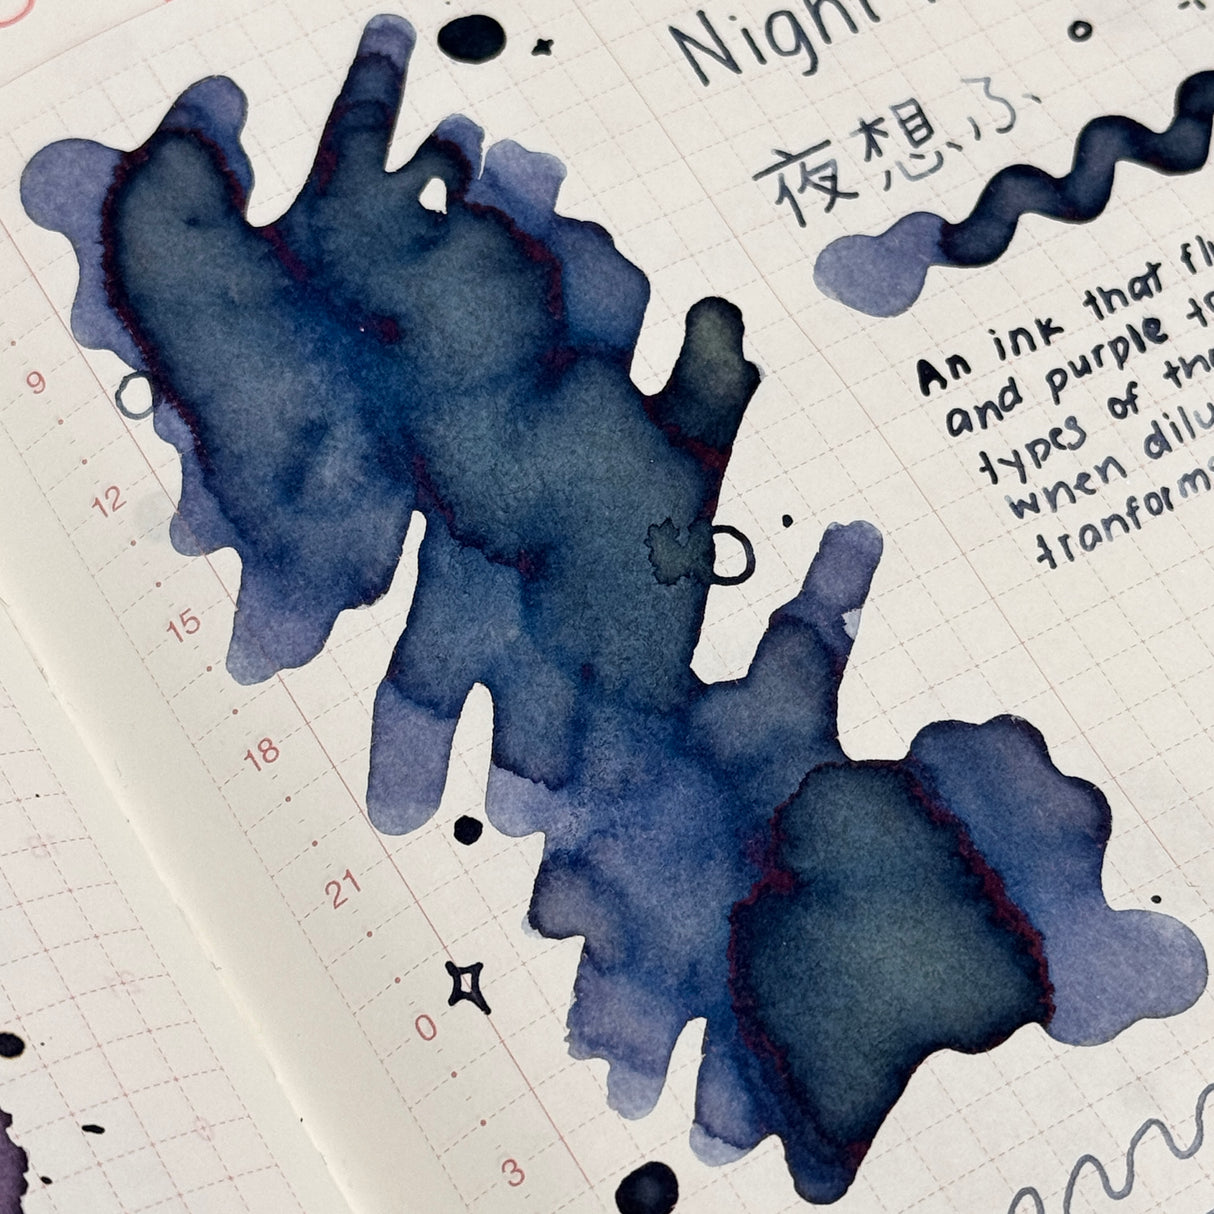 Night
夜想ふ
An ink that
and purple
types of
when
tranforms
9
12
15
18
21
0
3